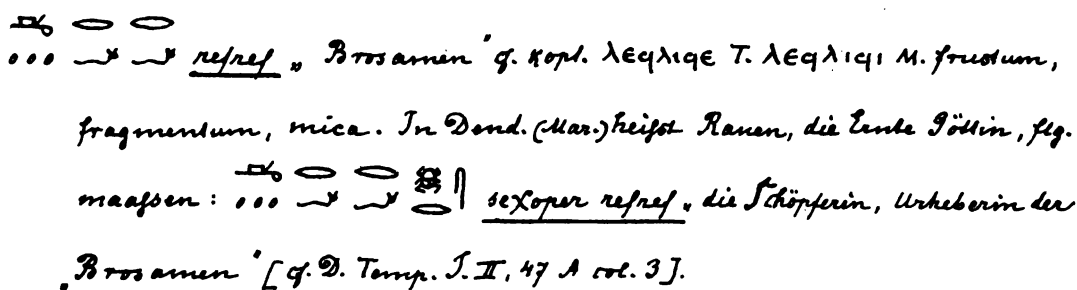 refref „Brosamen“ cf. kopt. ⲗⲉϥⲗⲓϥⲉ T. ⲗⲉϥⲗⲓϥⲓ M. frustum,
fragmentum, mica. In Dend. (Mar.) heiſst Ranen, die Ernte Göttin, flg.
maaſsen: seχoper refref „die Schöpferin, Urheberin der
„Brosamen“ [cf. D. Temp. T. II, 47 A col. 3].